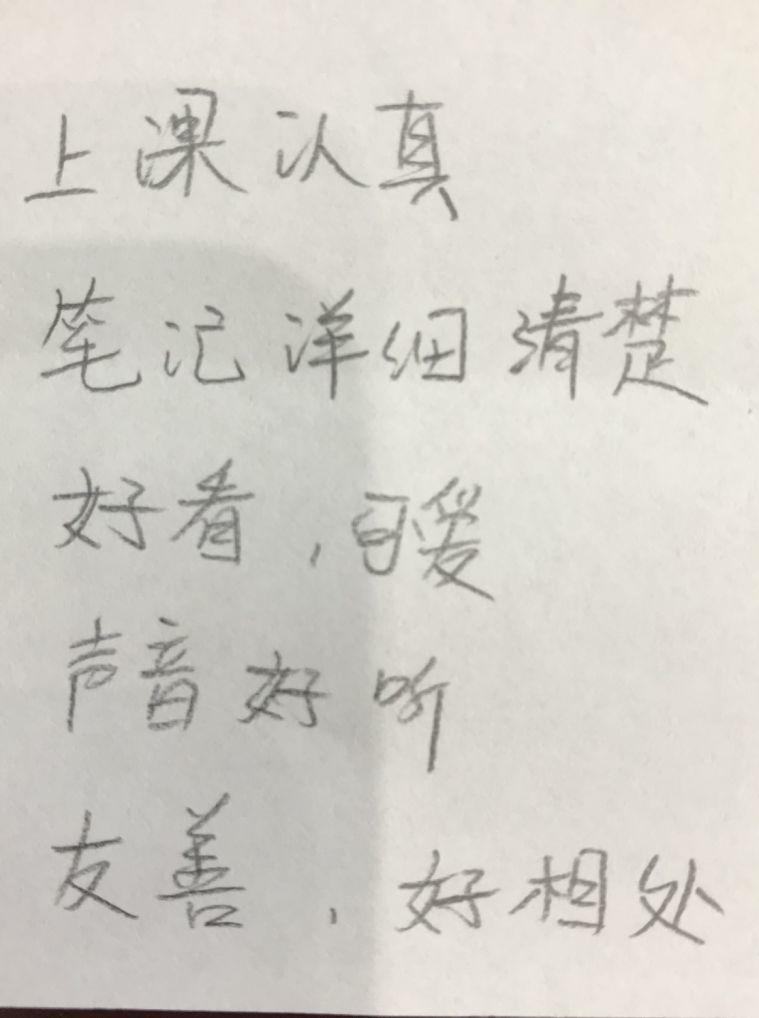 上课认真
笔记详细清楚
好看,暖
声音好听
友善,好相处